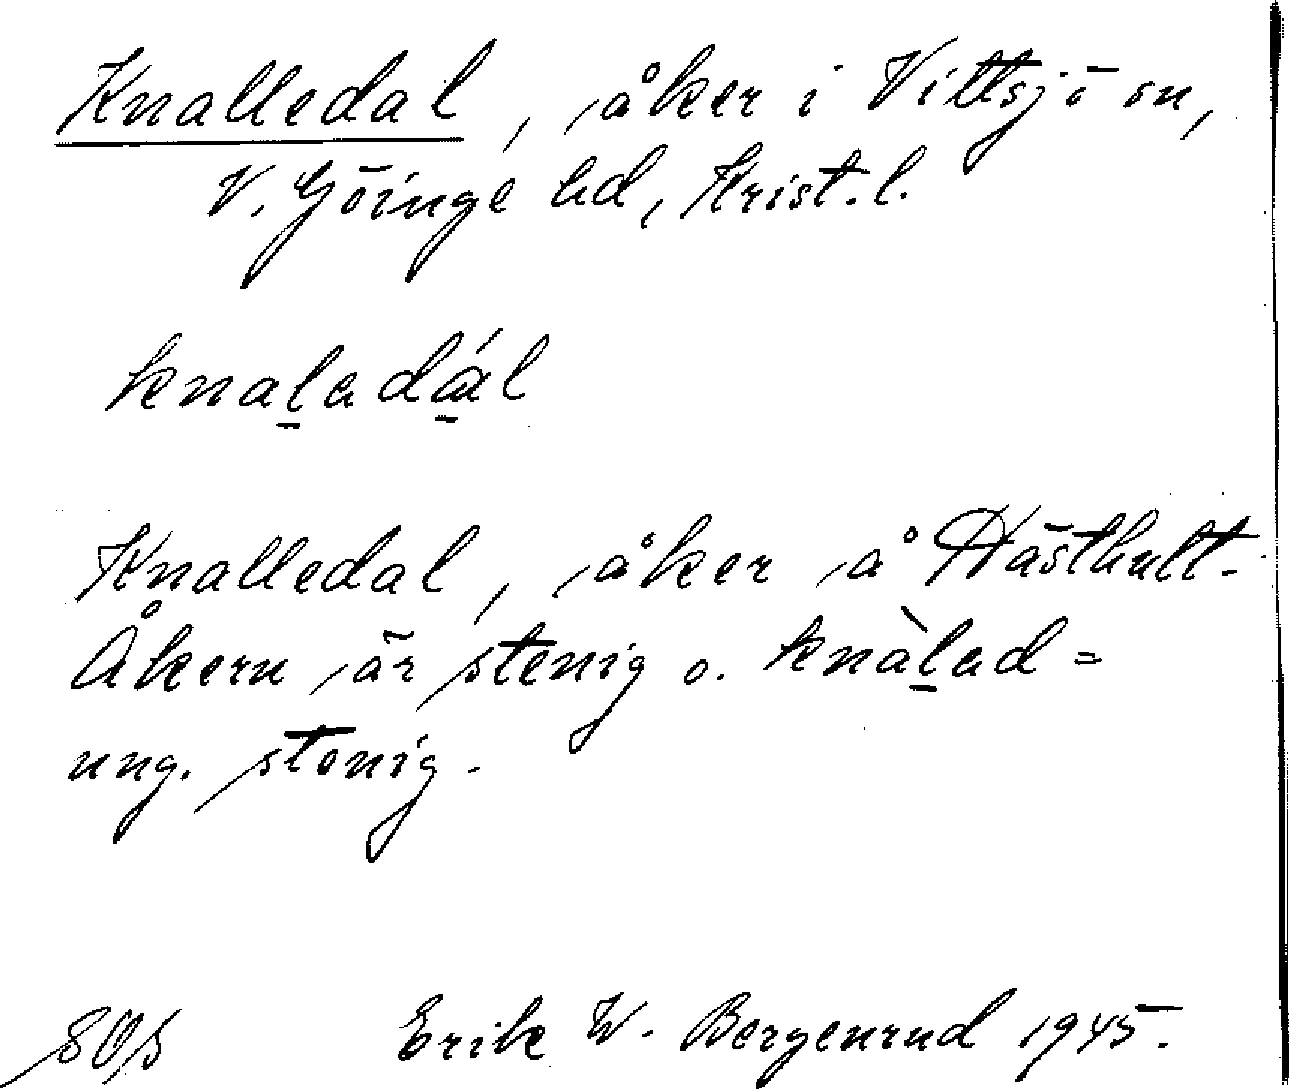 Knalledal, åker i Vittsjö sn,
V. Göinge hd, Krist. l.
knaladál
Knalledal, åker å Hästhult.
Åkern är stenig o. knàlad =
ung. stenig.
Erik W. Bergenrud 1945.